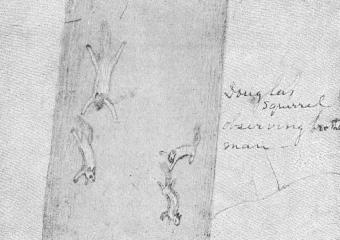 Douglas
Squirrel
observing brothe
man -